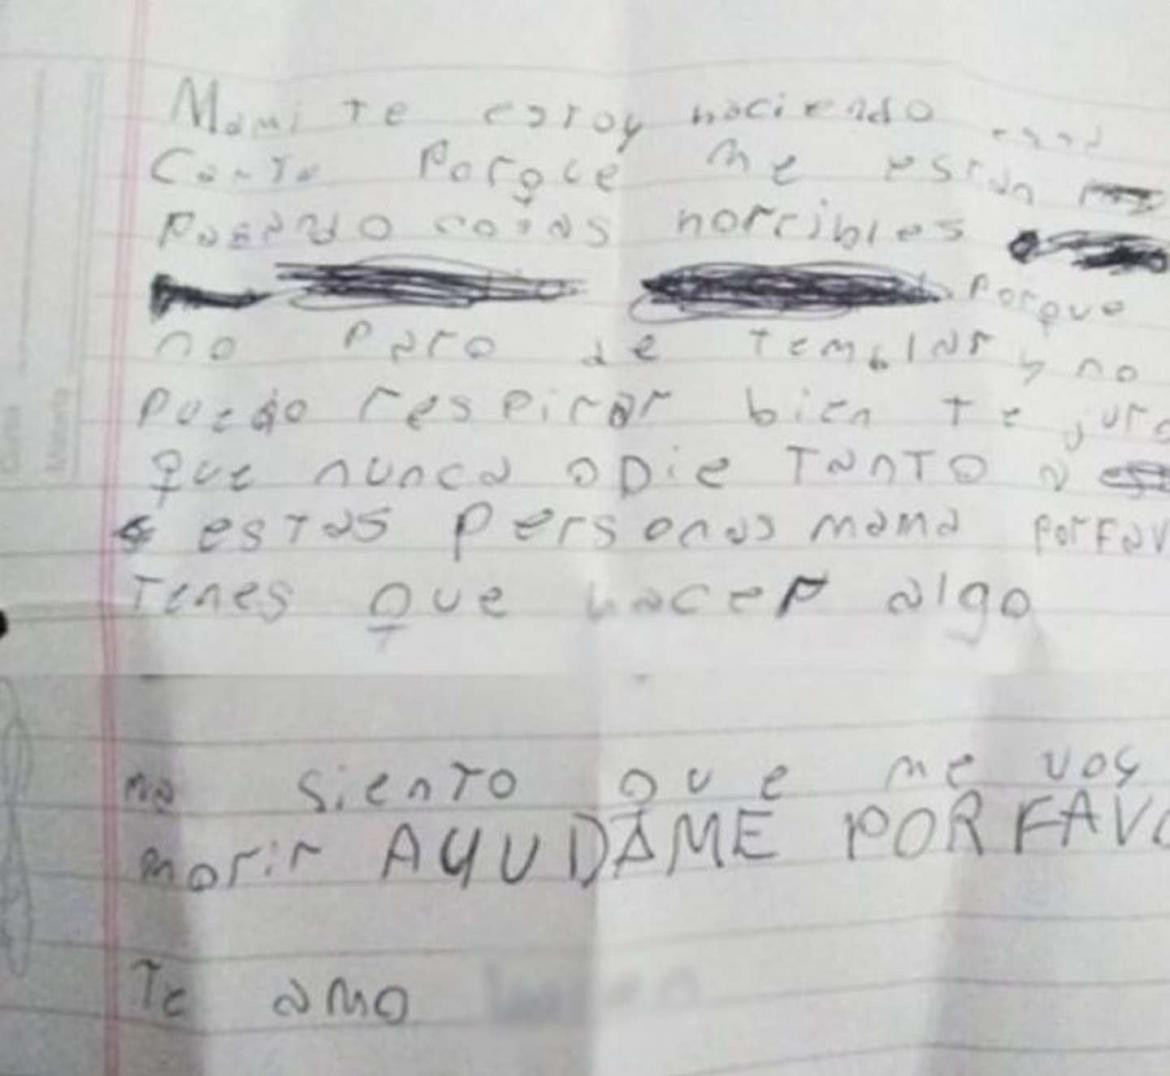 Mami te estoy haciendo esta
Carta Porque me están
Pasando cosas horribles
Porque
no Paro de temblar y no
Puedo respirar bien te juro
que nunca ODie TanTO a
esTas Personas mama PorFav
Tenes Que hacer algo
me sienTO que me voy
morir AYUDAME POR FAVO
Te amo